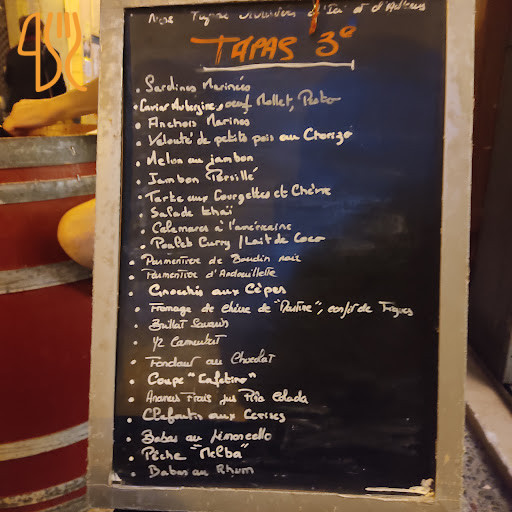 Nos Tapas d'Ici et d'Ailleurs
TAPAS 3€
• Sardines Marinées
• Caviar Aubergine, oeuf Mollet, Pesto
• Anchois Marinés
• Velouté de petits pois au Chorizo
• Melon au jambon
• Jambon Persillé
• Tarte aux Courgettes et Chèvre
• Salade thaï
• Calamars à l'américaine
• Poulet Curry / Lait de Coco
• Parmentier de Boudin noir
• Parmentier d'Andouillette
• Gnocchis aux Cèpes
• Fromage de chèvre de confit de Figues
• Brillat Savarin
• 1/2 Camembert
• Fondant au Chocolat
• Coupe "Cafetino"
• Ananas Frais jus Piña Colada
• Clafoutis aux Cerises
• Babas au Limoncello
• Pêche "Melba"
• Babas au Rhum